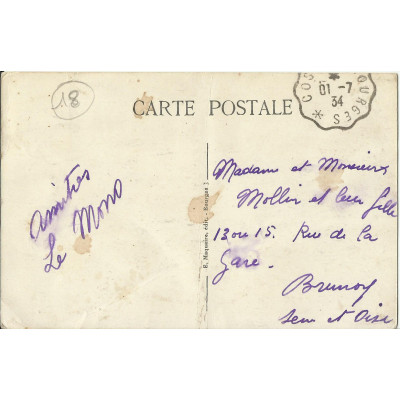 18
CARTE POSTALE
COS
OURGES
01 -7
34
Amitiés
Le Mono
R. Maquaire, édit. - Bourges
Madame et Monsieur
Mollin et leur fille
13 ou 15. Rue de la
Gare.
Brunoy
Seine et Oise